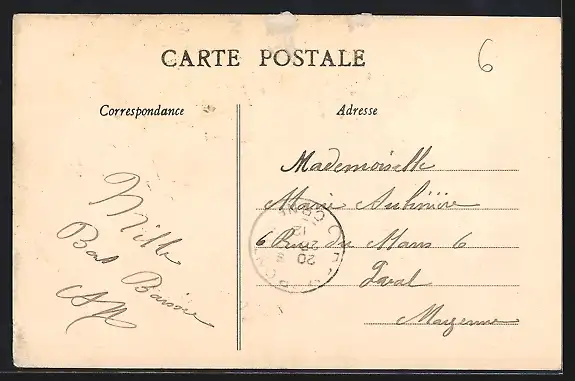 6
CARTE POSTALE
Correspondance
Adresse
Mille
Bons Baisers
Mademoiselle
Marie
6 Rue du Mans 6
Laval
Mayenne
20
12
ORNE